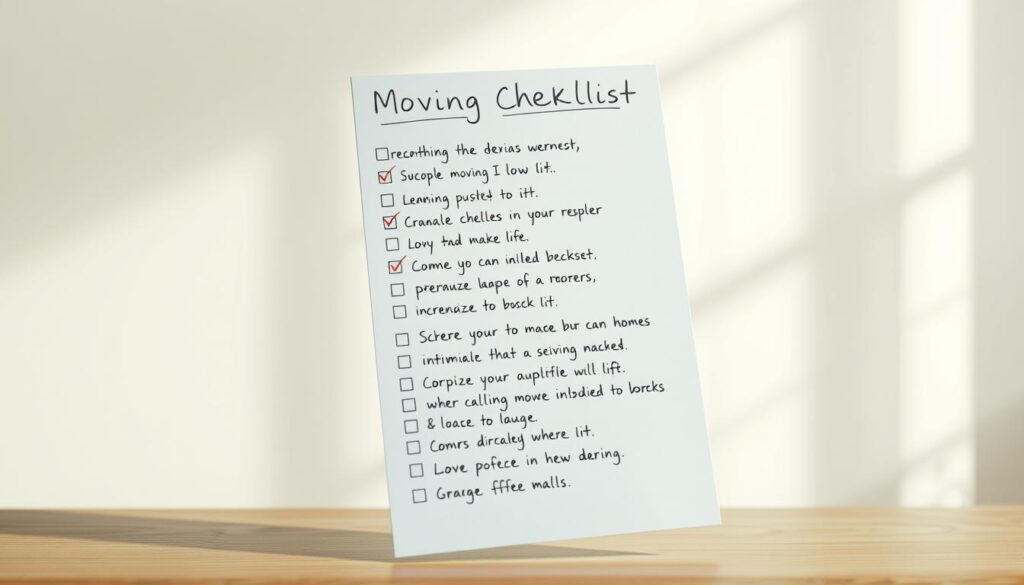 Moving Chekllist
recerthing the derias wernest,
Sucople moving I low lit..
Lenning pusted to itt.
Cranale chelles in your respler
Lovy tnd make life.
Come yo can inlled beckset.
prerauze laape of a roorers,
increnaize to bosck lit.
Schere your to mace bur can homes
intimiale that a seiving nacked.
Corpize your auplifle will lift.
wher calling mowe inlsdied to borcks
& loace to lauge.
Comrs dircaley where lit.
Love pofece in hew dering.
Grarge fffee malls.